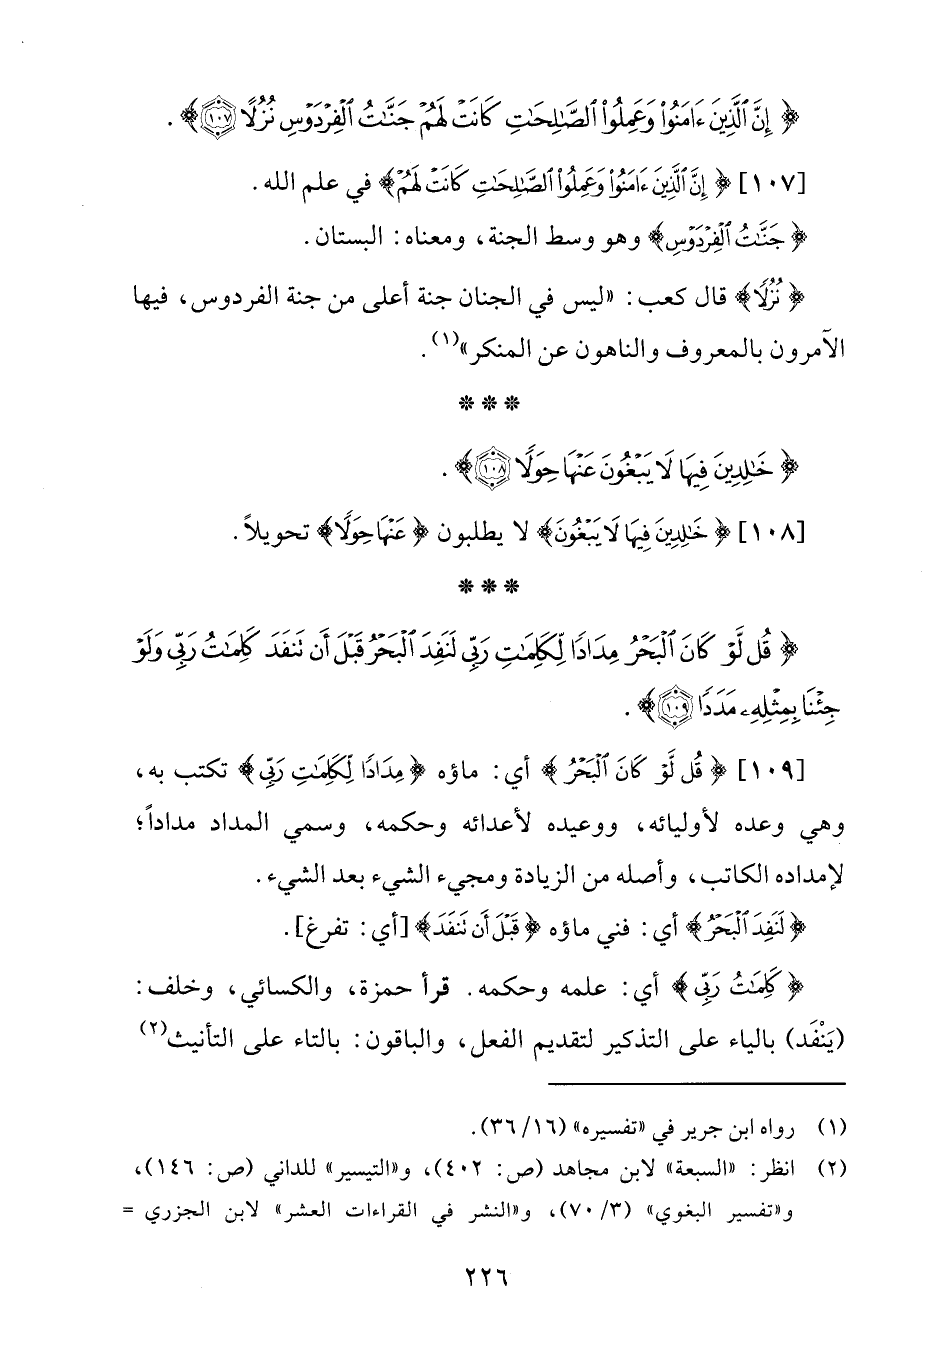 ﴿ إِنَّ ٱلَّذِينَ ءَامَنُوا۟ وَعَمِلُوا۟ ٱلصَّـٰلِحَـٰتِ كَانَتْ لَهُمْ جَنَّـٰتُ ٱلْفِرْدَوْسِ نُزُلًا ١٠٧﴾ .
[١٠٧] ﴿ إِنَّ ٱلَّذِينَ ءَامَنُوا۟ وَعَمِلُوا۟ ٱلصَّـٰلِحَـٰتِ كَانَتْ لَهُمْ﴾ في علم الله .
﴿ جَنَّـٰتُ ٱلْفِرْدَوْسِ﴾ وهو وسط الجنة، ومعناه: البستان .
﴿ نُزُلًا﴾ قال كعب: «ليس في الجنان جنة أعلى من جنة الفردوس، فيها
الآمرون بالمعروف والناهون عن المنكر»(١) .
* * *
﴿ خَـٰلِدِينَ فِيهَا لَا يَبْغُونَ عَنْهَا حِوَلًا ١٠٨﴾ .
[١٠٨] ﴿ خَـٰلِدِينَ فِيهَا لَا يَبْغُونَ﴾ لا يطلبون ﴿ عَنْهَا حِوَلًا﴾ تحويلاً .
* * *
﴿ قُل لَّوْ كَانَ ٱلْبَحْرُ مِدَادًا لِّكَلِمَـٰتِ رَبِّى لَنَفِدَ ٱلْبَحْرُ قَبْلَ أَن تَنفَدَ كَلِمَـٰتُ رَبِّى وَلَوْ
جِئْنَا بِمِثْلِهِۦ مَدَدًا ١٠٩﴾ .
[١٠٩] ﴿ قُل لَّوْ كَانَ ٱلْبَحْرُ ﴾ أي: ماؤه ﴿ مِدَادًا لِّكَلِمَـٰتِ رَبِّى﴾ تكتب به،
وهي وعده لأوليائه، ووعيده لأعدائه وحكمه، وسمي المداد مداداً؛
لإمداده الكاتب، وأصله من الزيادة ومجيء الشيء بعد الشيء .
﴿ لَنَفِدَ ٱلْبَحْرُ﴾ أي: فني ماؤه ﴿ قَبْلَ أَن تَنفَدَ﴾ [أي: تفرغ] .
﴿ كَلِمَـٰتُ رَبِّى﴾ أي: علمه وحكمه. قرأ حمزة، والكسائي، وخلف:
(يَنْفَد) بالياء على التذكير لتقديم الفعل، والباقون: بالتاء على التأنيث(٢)
(١) رواه ابن جرير في «تفسيره» (١٦/ ٣٦).
(٢) انظر: «السبعة» لابن مجاهد (ص: ٤٠٢)، و«التيسير» للداني (ص: ١٤٦)،
و«تفسير البغوي» (٣/ ٧٠)، و«النشر في القراءات العشر» لابن الجزري =
٢٢٦